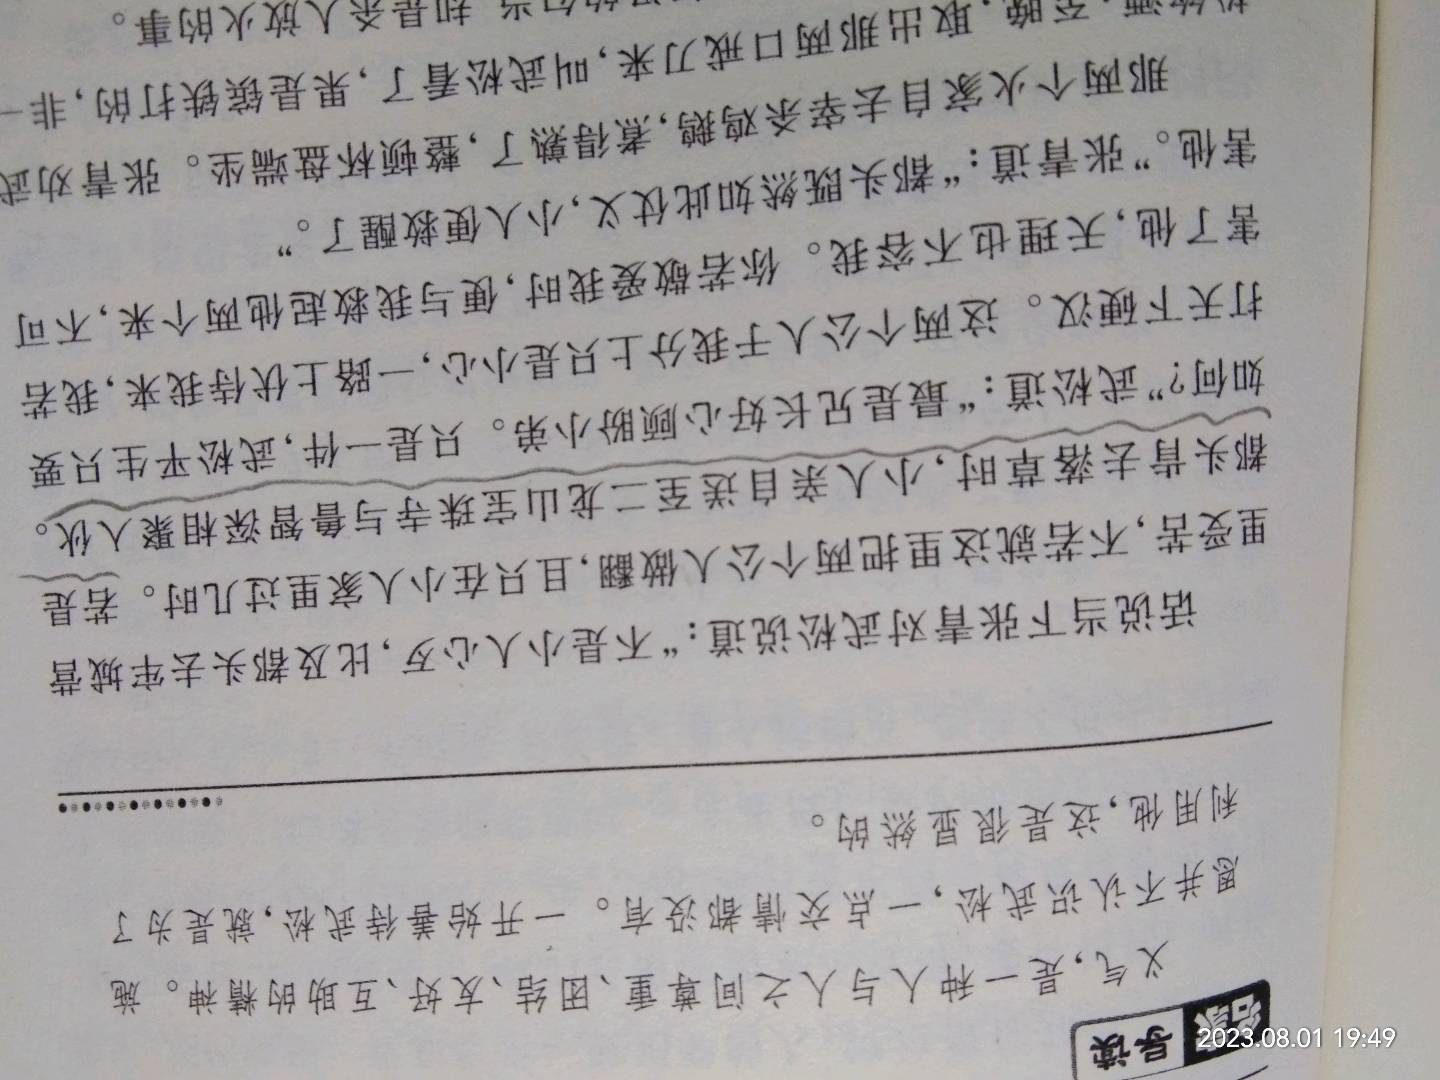 名家导读
义气,是一种人与人之间尊重、团结、友好、互助的精神。施
恩并不认识武松,一点交情都没有。一开始善待武松,就是为了
利用他,这是很显然的。
话说当下张青对武松说道:“不是小人心歹,比及都头去牢城营
里受苦,不若就这里把两个公人做翻,且只在小人家里过几时。若是
都头肯去落草时,小人亲自送至二龙山宝珠寺与鲁智深相聚入伙。
如何?”武松道:“最是兄长好心顾盼小弟。只是一件,武松平生只要
打天下硬汉。这两个公人于我分上只是小心,一路上伏侍我来,我若
害了他,天理也不容我。你若敬爱我时,便与我救起他两个来,不可
害他。”张青道:“都头既然如此仗义,小人便救醒了。”
那两个火家自去宰杀鸡鹅,煮得熟了,整顿杯盘端坐。张青劝武
至晚,取出那两口戒刀来,叫武松看了,果是镔铁打的,非一
却是杀人放火的事。
2023.08.01 19:49